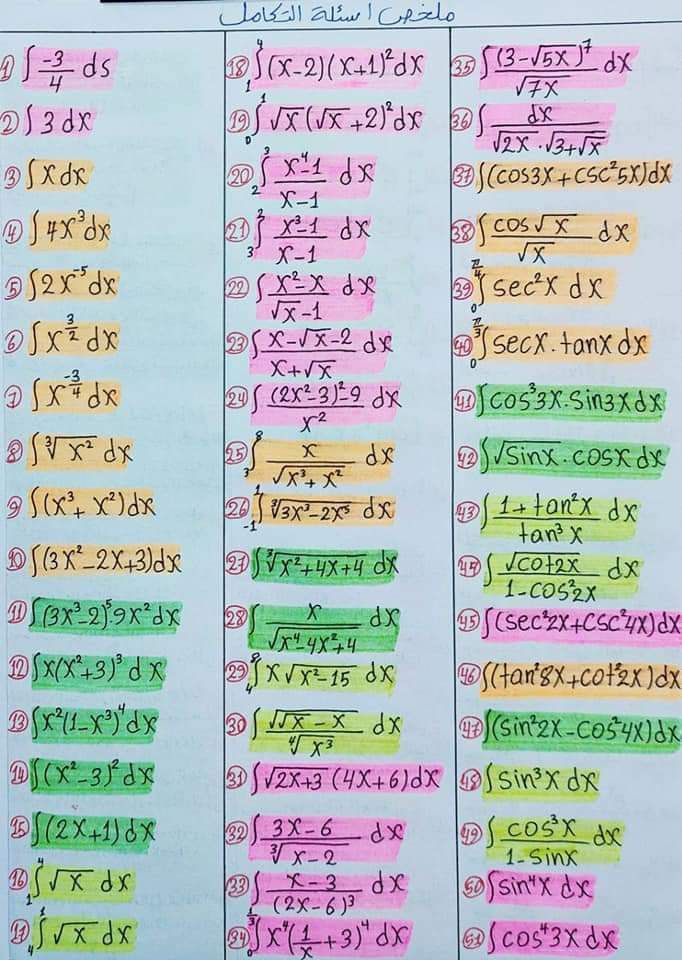 ملخص اسئلة التكامل
① ∫ -3/4 ds
② ∫ 3 dx
③ ∫ x dx
④ ∫ 4x³ dx
⑤ ∫ 2x⁻⁵ dx
⑥ ∫ x^(3/2) dx
⑦ ∫ x^(-3/4) dx
⑧ ∫ ∛(x²) dx
⑨ ∫ (x³ + x²) dx
⑩ ∫ (3x² - 2x + 3) dx
⑪ ∫ (3x³ - 2)⁵ 9x² dx
⑫ ∫ x(x² + 3)³ dx
⑬ ∫ x²(1 - x³)⁴ dx
⑭ ∫ (x² - 3)² dx
⑮ ∫ (2x + 1) dx
⑯ ∫₁⁴ √x dx
⑰ ∫₄¹ √x dx
⑱ ∫₁⁴ (x-2)(x+1)² dx
⑲ ∫₀¹ √x (√x + 2)² dx
⑳ ∫₂³ (x⁴-1)/(x-1) dx
㉑ ∫₃² (x³-1)/(x-1) dx
㉒ ∫ (x²-x)/(√x-1) dx
㉓ ∫ (x-√x-2)/(x+√x) dx
㉔ ∫ ((2x²-3)²-9)/x² dx
㉕ ∫₃⁸ x/√(x³+x²) dx
㉖ ∫₋₁¹ ∛(3x³-2x⁵) dx
㉗ ∫ ∛(x²+4x+4) dx
㉘ ∫ x/√(x⁴-4x²+4) dx
㉙ ∫₄⁸ x√(x²-15) dx
㉚ ∫ √(√x - x)/∜(x³) dx
㉛ ∫ √(2x+3) (4x+6) dx
㉜ ∫ (3x-6)/∛(x-2) dx
㉝ ∫ (x-3)/(2x-6)³ dx
㉞ ∫₀^(1/3) x⁴(1/x + 3)⁴ dx
㉟ ∫ (3-√5x)⁷/√7x dx
㊱ ∫ dx/(√2x · √(3+√x))
㊲ ∫ (cos3x + csc²5x) dx
㊳ ∫ cos√x/√x dx
㊴ ∫₀^(π/4) sec²x dx
㊵ ∫₀^(π/3) secx · tanx dx
㊶ ∫ cos³3x · Sin3x dx
㊷ ∫ √sinx · cosx dx
㊸ ∫ (1+tan²x)/tan³x dx
㊹ ∫ √cot2x/(1-cos²2x) dx
㊺ ∫ (sec²2x + csc²4x) dx
㊻ ∫ (tan²8x + cot²2x) dx
㊼ ∫ (sin²2x - cos²4x) dx
㊽ ∫ sin³x dx
㊾ ∫ cos³x/(1-sinx) dx
㊿ ∫ sin⁴x dx
51 ∫ cos⁴3x dx